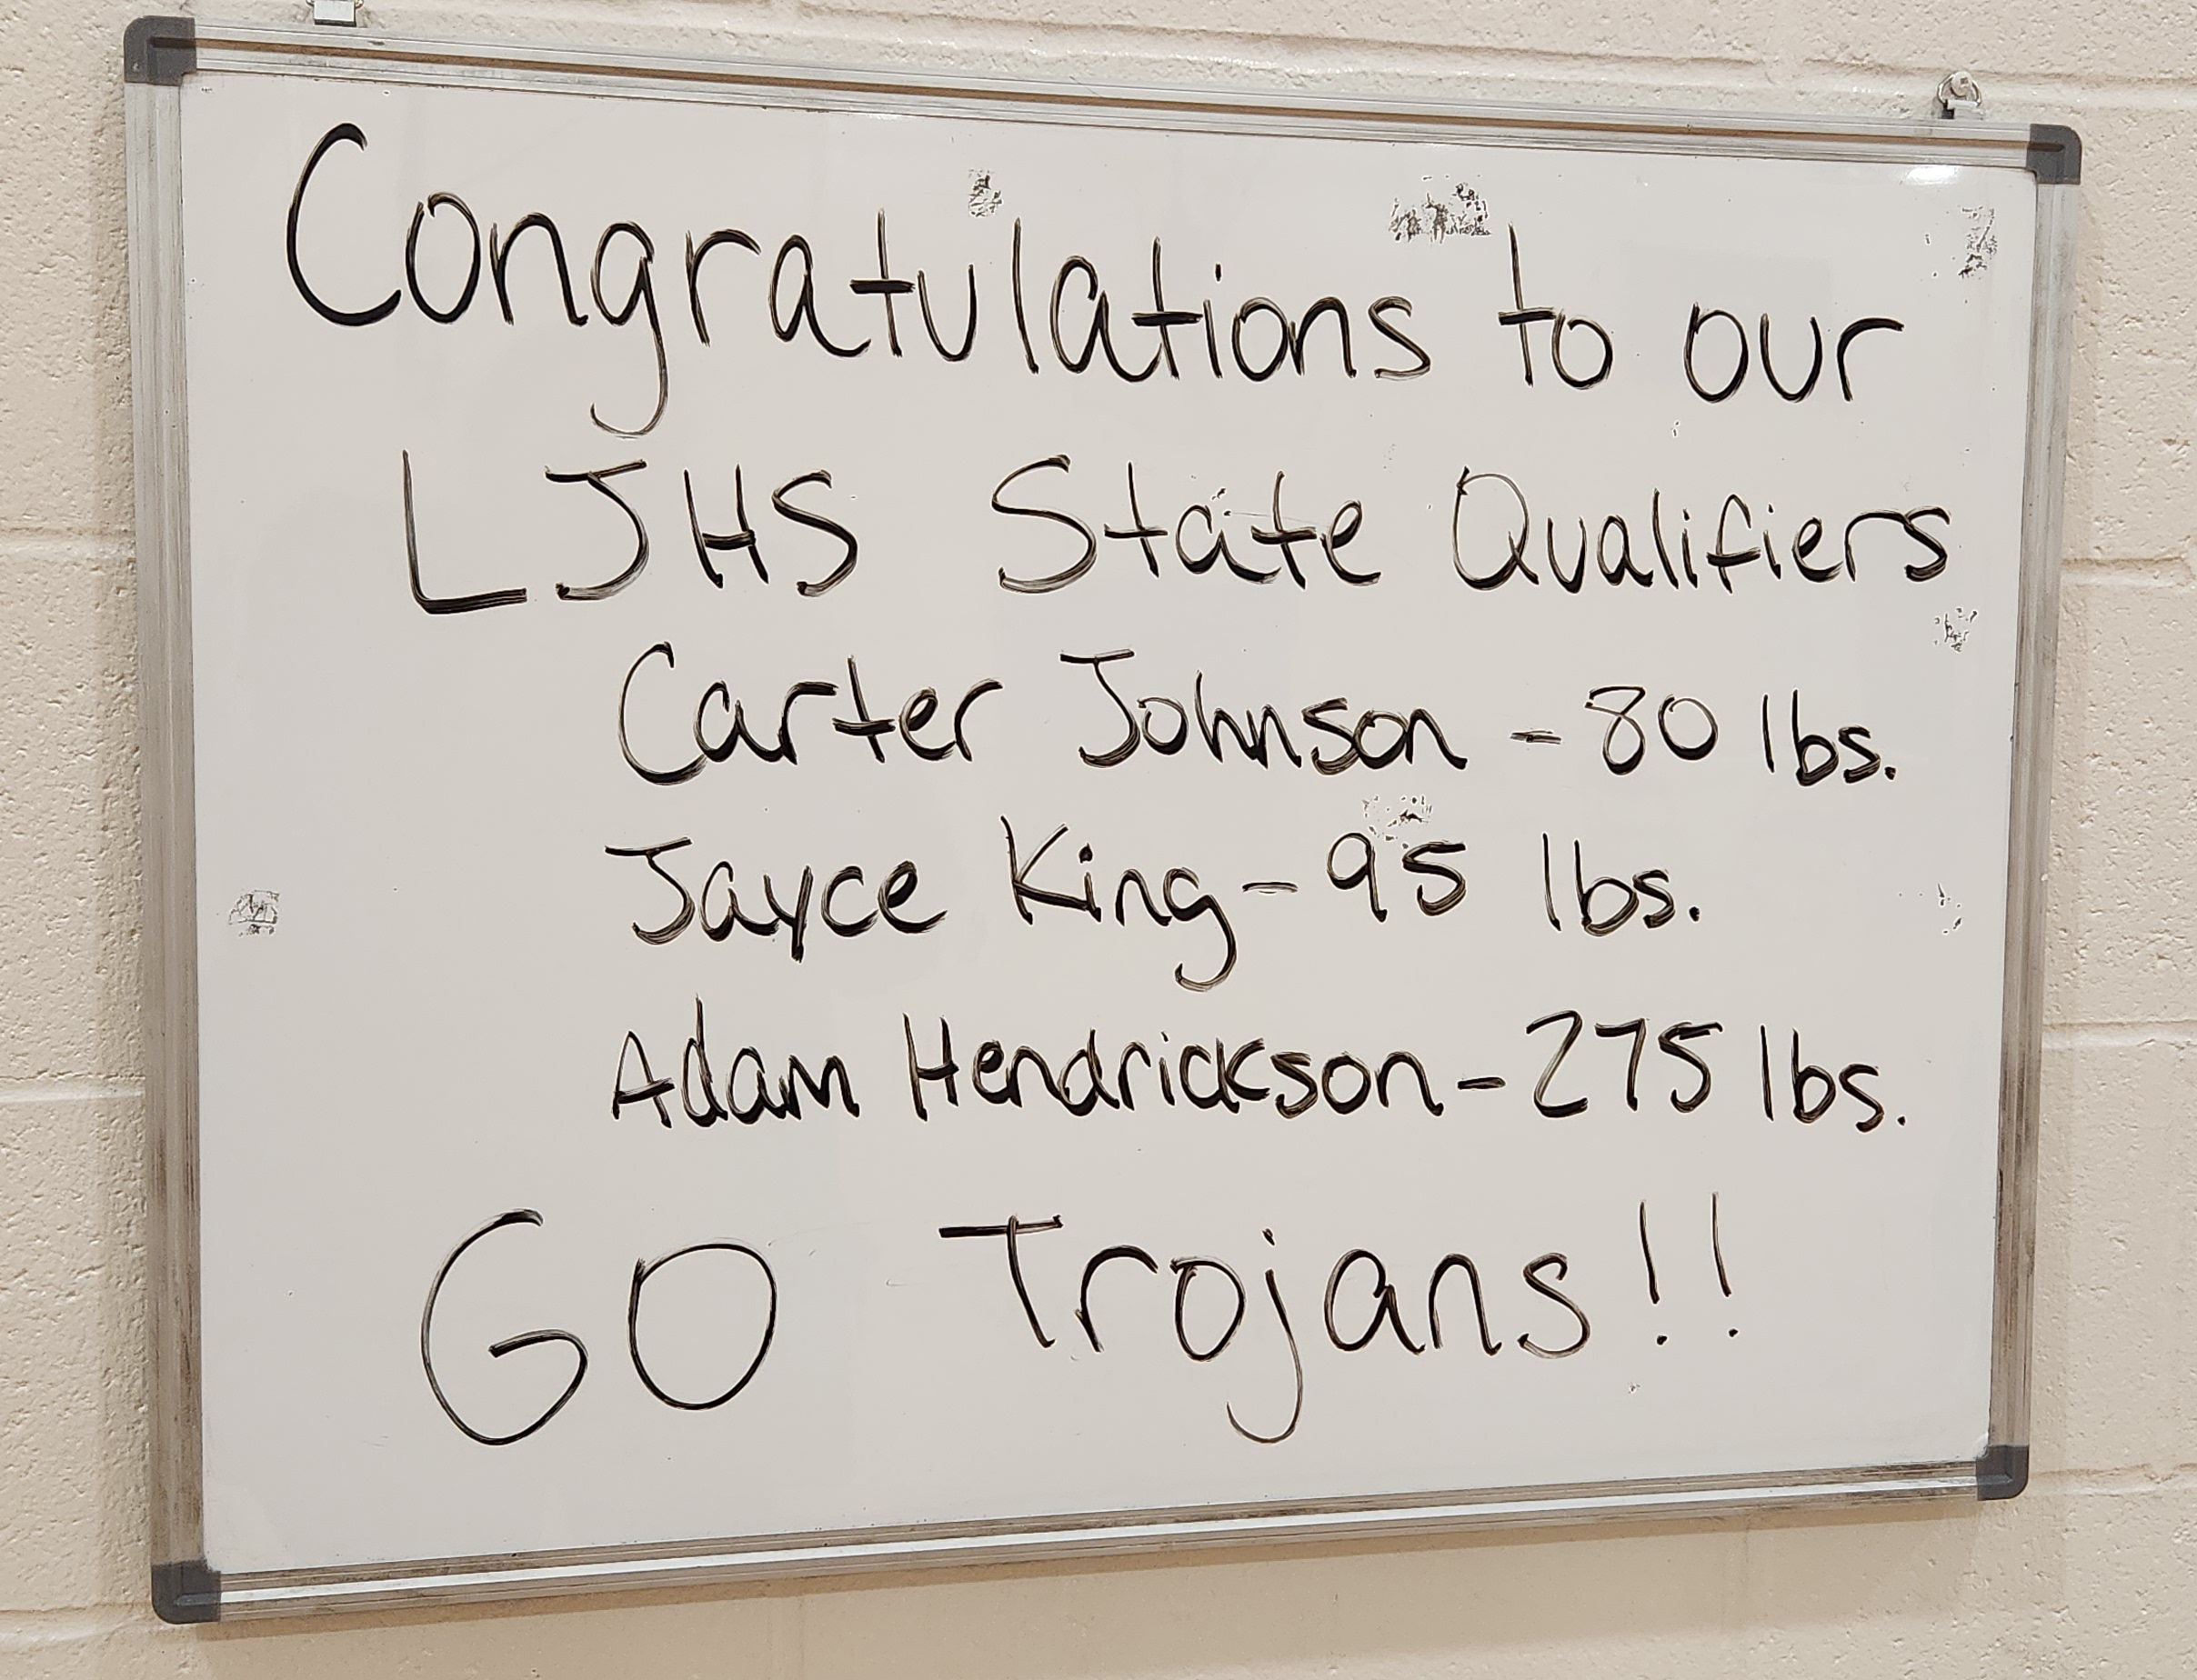 Congratulations to our
LJHS State Qualifiers
Carter Johnson - 80 lbs.
Jayce King - 95 lbs.
Adam Hendrickson - 275 lbs.
GO Trojans!!